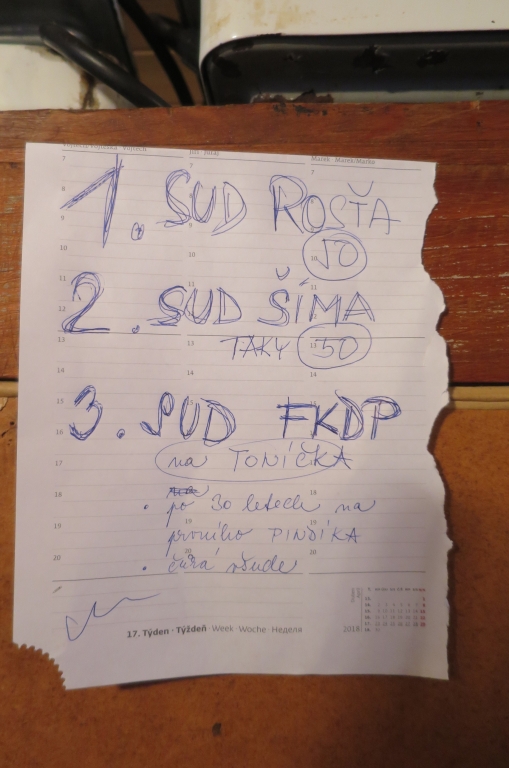 Marek · Marek/Marko
7 7 7
1. SUD ROSŤA
8
9 9
10 10 10
50
11 11 11
2. SUD ŠÍMA
12 12
13 13 13
TAKY 50
14 14 14
15
3. SUD FKDP
16
17
na TONÍČKA
18 18
• po 30 letech na
19
prvního PINDÍKA
20 20 20
• čůrá všude
17. Týden · Týždeň · Week · Woche · Неделя 2018